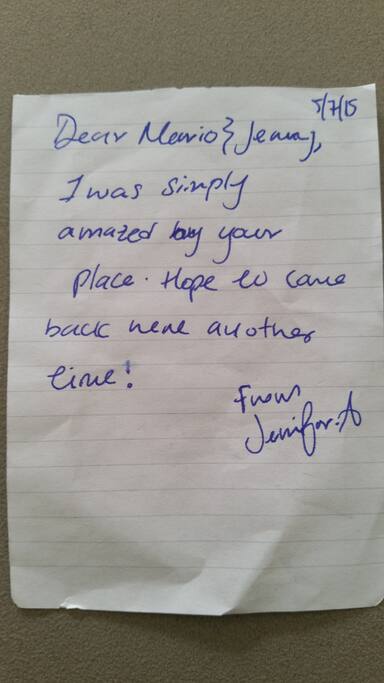 5/7/15
Dear Mario & Jenny,
I was simply
amazed by your
place. Hope to come
back here another
time!
From
Jennifer.A